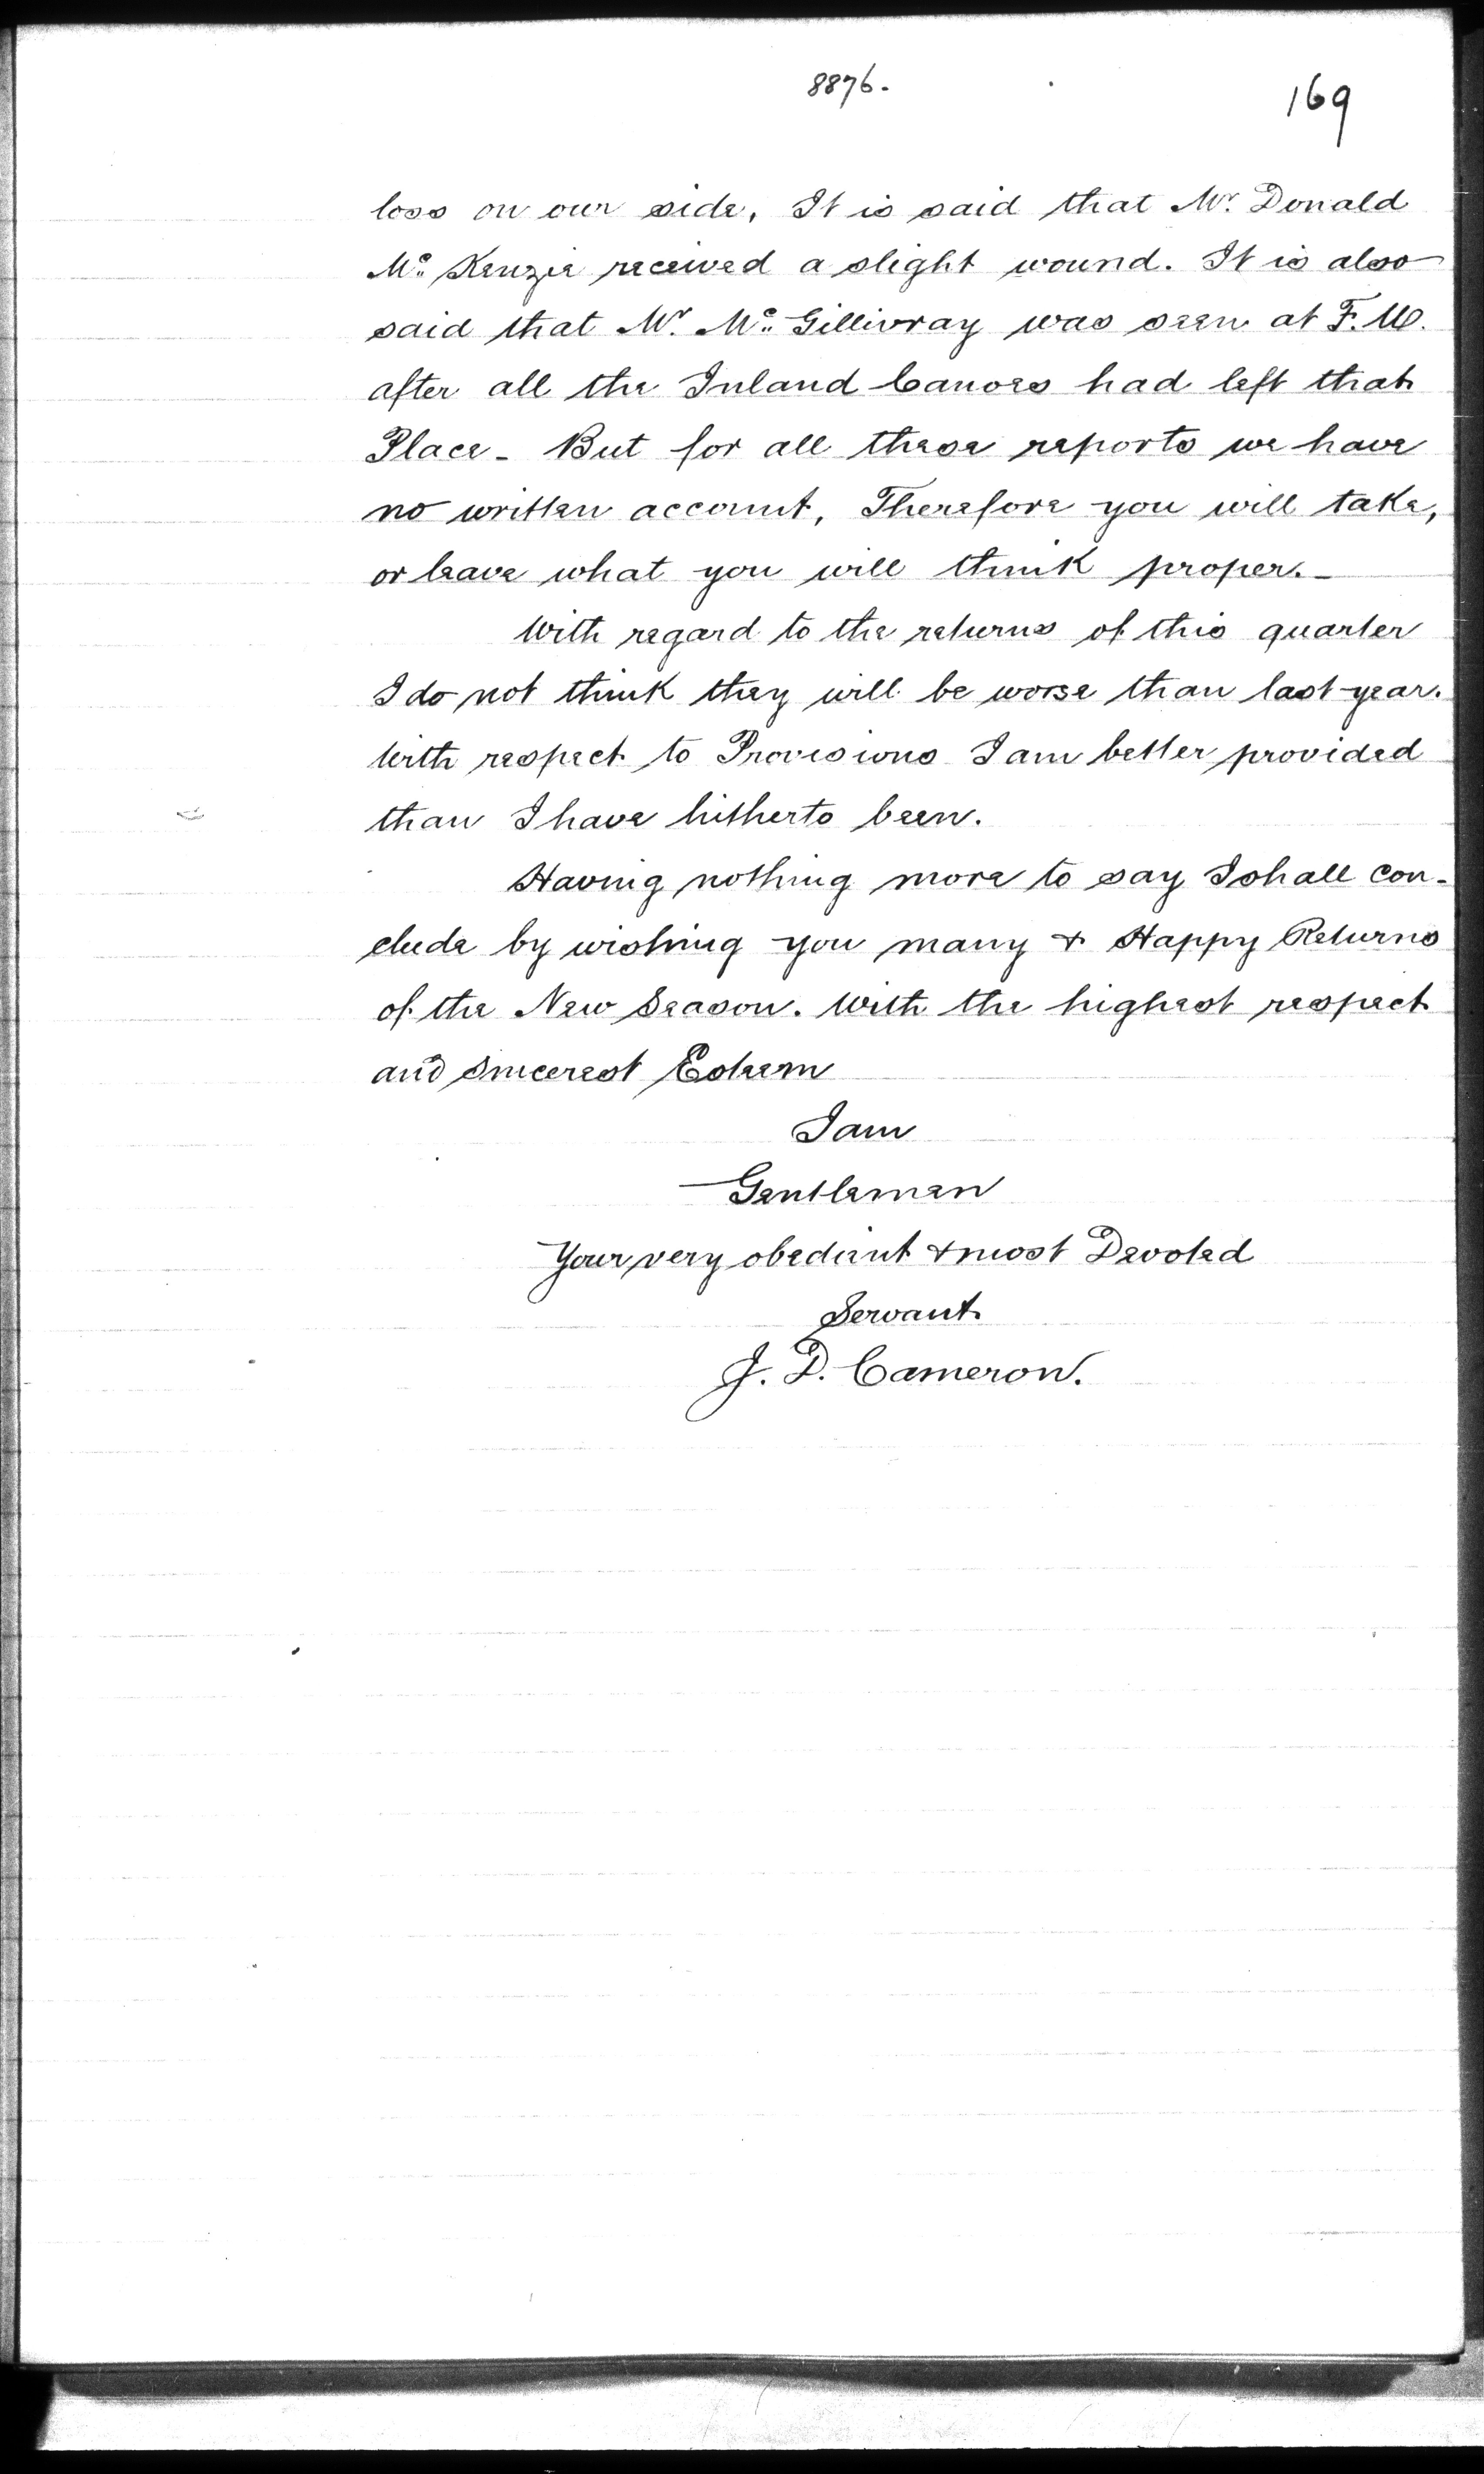 8876.
169
loss on our side, It is said that Mr. Donald
Mc. Kenzie received a slight wound. It is also
said that Mr. Mc. Gillivray was seen at F. W.
after all the Inland Canoes had left that
Place - But for all these reports we have
no written account, Therefore you will take,
or leave what you will think proper. -
With regard to the returns of this quarter
I do not think they will be worse than last year.
With respect to Provisions I am better provided
than I have hitherto been.
Having nothing more to say I shall con-
clude by wishing you many & Happy Returns
of the New Season. With the highest respect
and sincerest Esteem
I am
Gentlemen
Your very obedient & most Devoted
Servant.
J. D. Cameron.